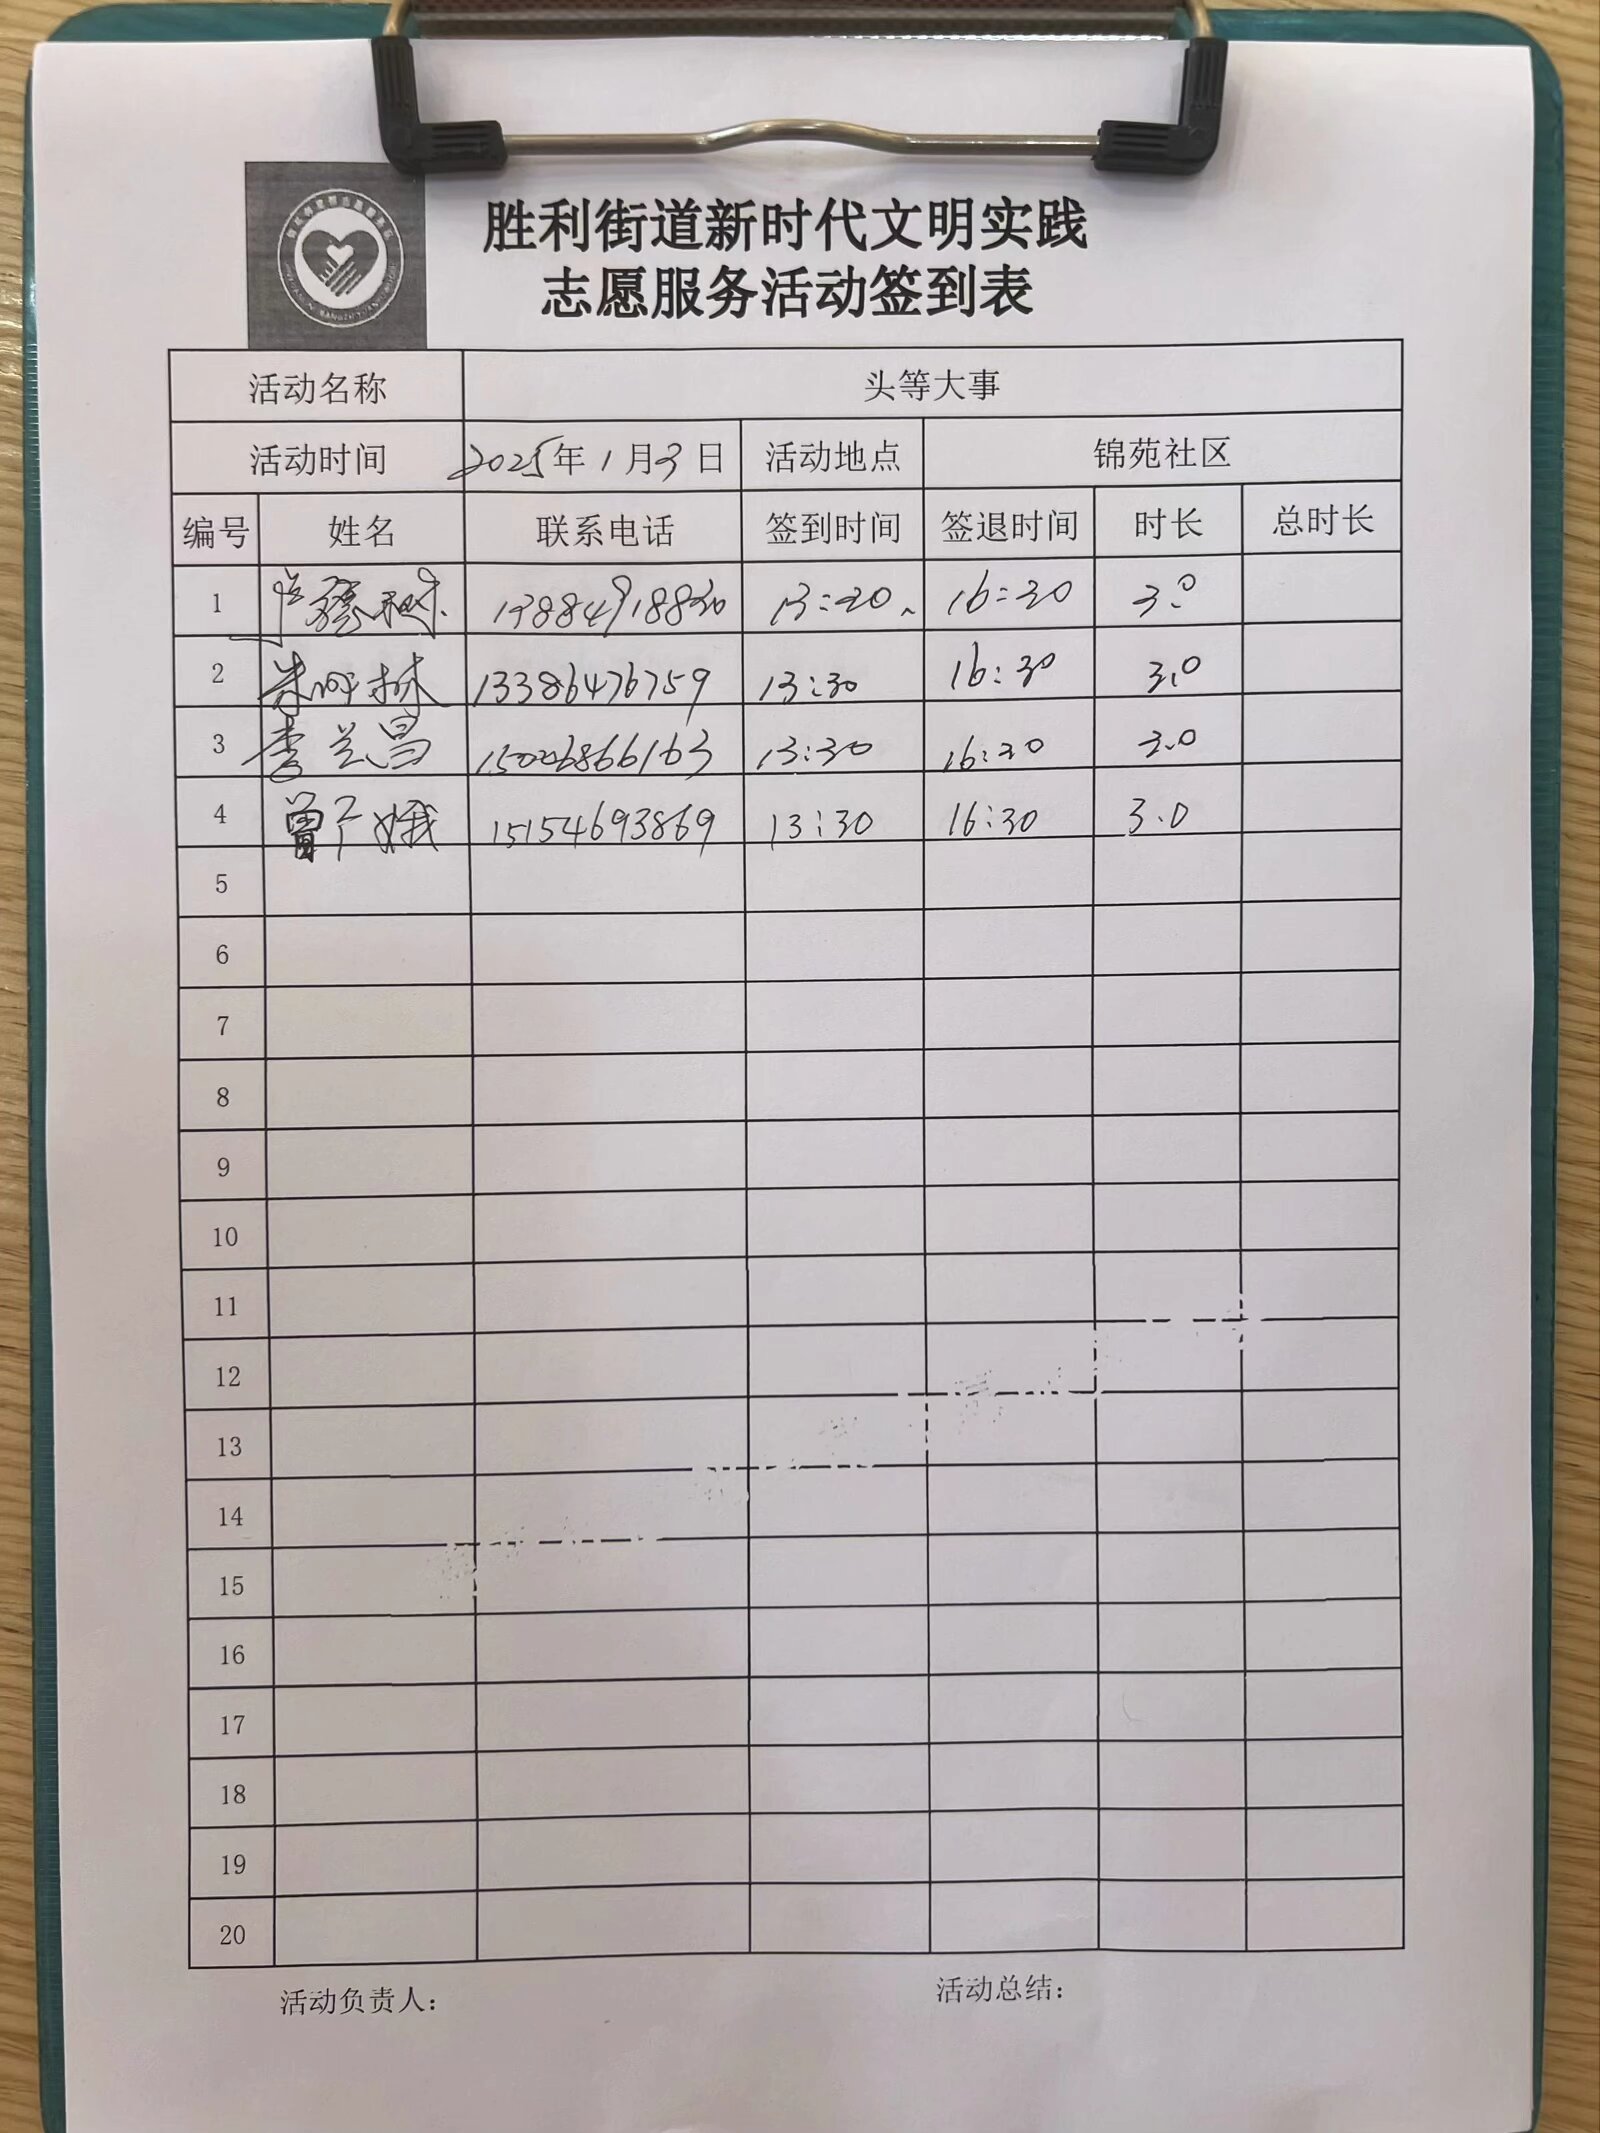 胜利街道新时代文明实践
志愿服务活动签到表
活动名称 头等大事
活动时间 2025年1月3日 活动地点 锦苑社区
编号 姓名 联系电话 签到时间 签退时间 时长 总时长
1 13884918830 13:30 16:30 3.0
2 朱 林 13386476759 13:30 16:30 3.0
3 李兰昌 15006866163 13:30 16:30 3.0
4 曾 娥 15154693869 13:30 16:30 3.0
5
6
7
8
9
10
11
12
13
14
15
16
17
18
19
20
活动负责人: 活动总结: